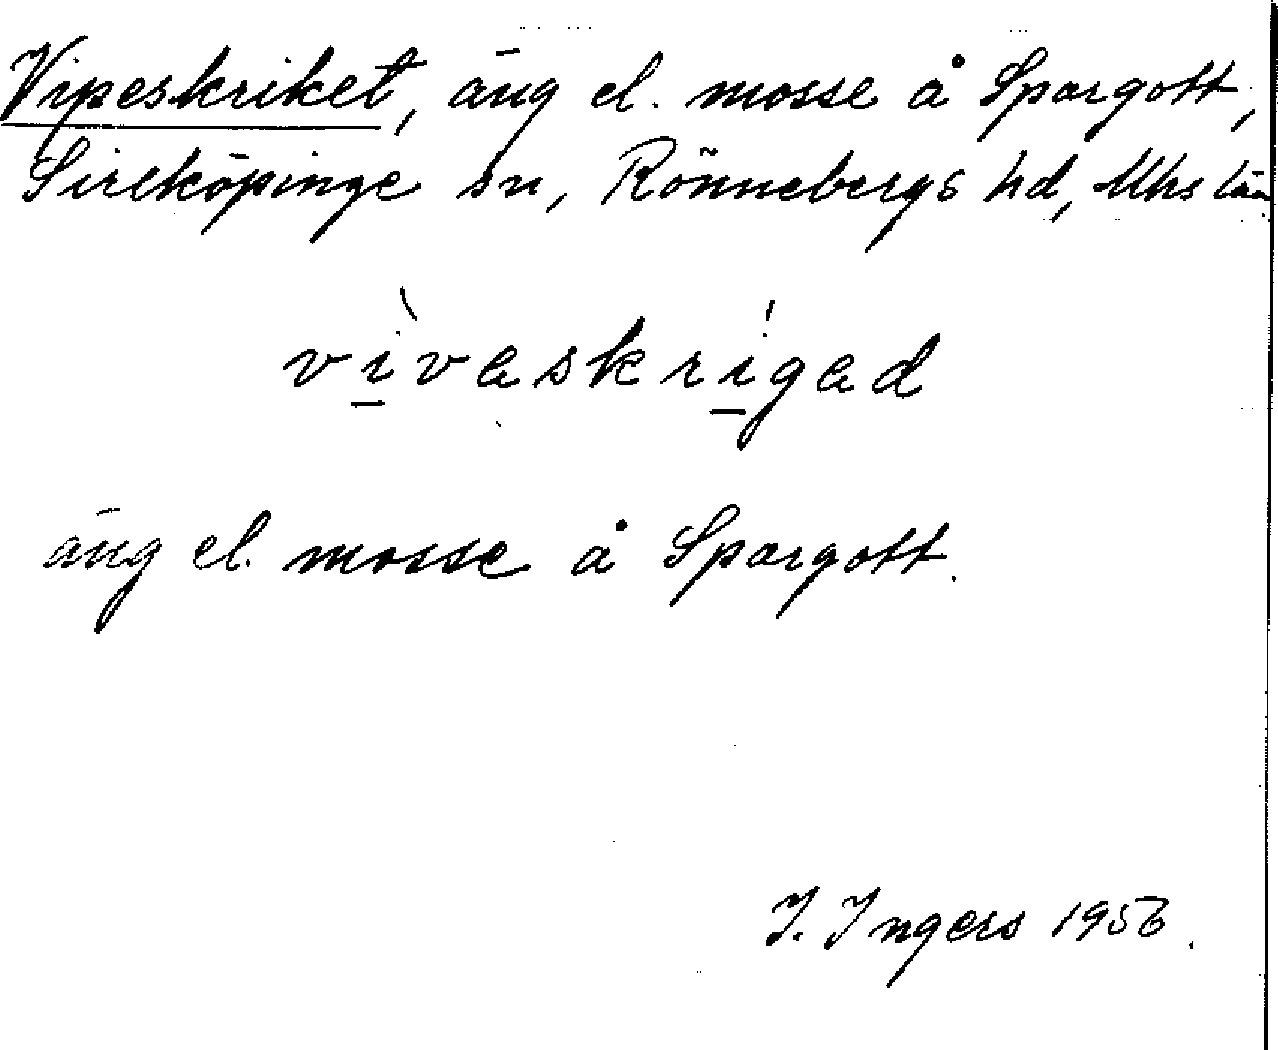 Vipeskriket, äng el. mosse å Spargott,
Sireköpinge sn, Rönnebergs hd, Mhs län
vìvaskrígad
äng el. mosse å Spargott.
I. Ingers 1956.